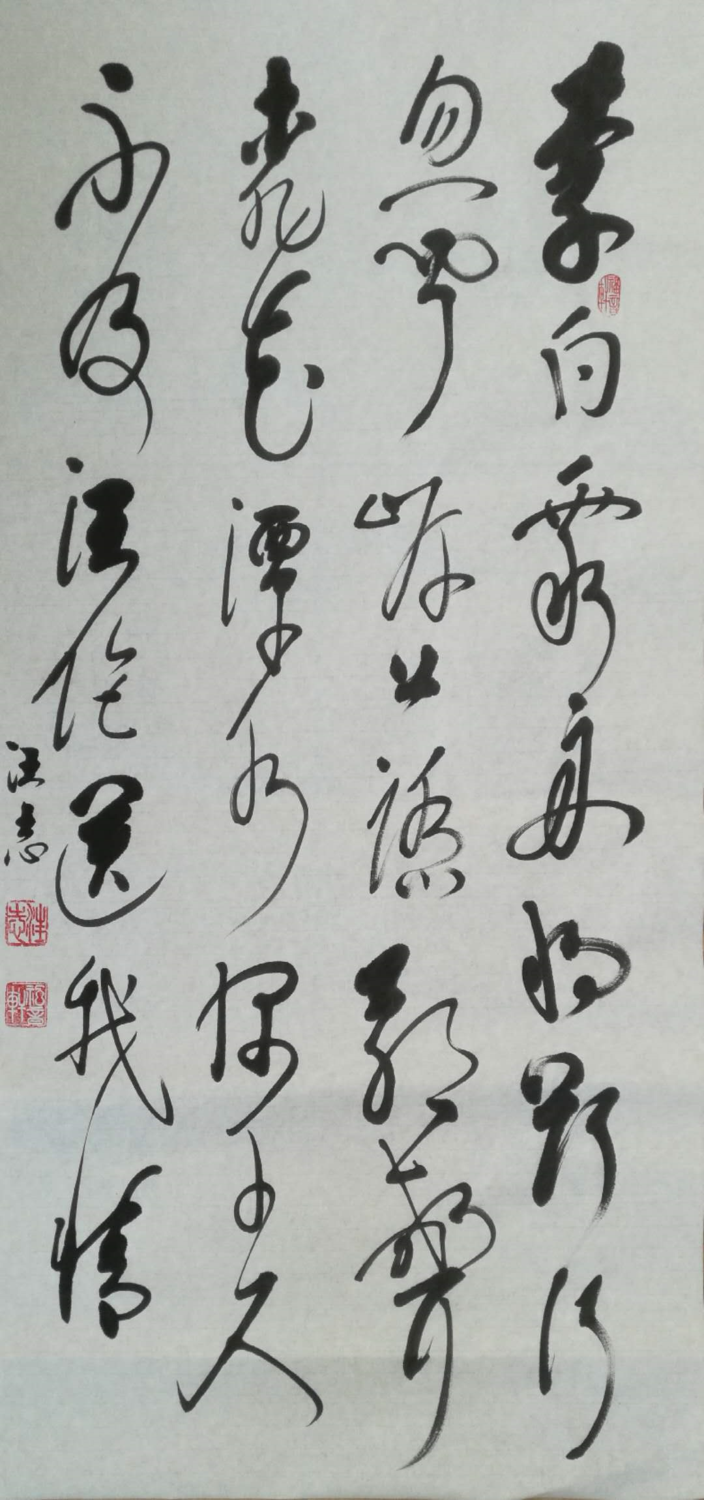 李白乘舟將欲行
忽聞岸上踏歌聲
桃花潭水深千尺
不及汪倫送我情
汪志
汪志